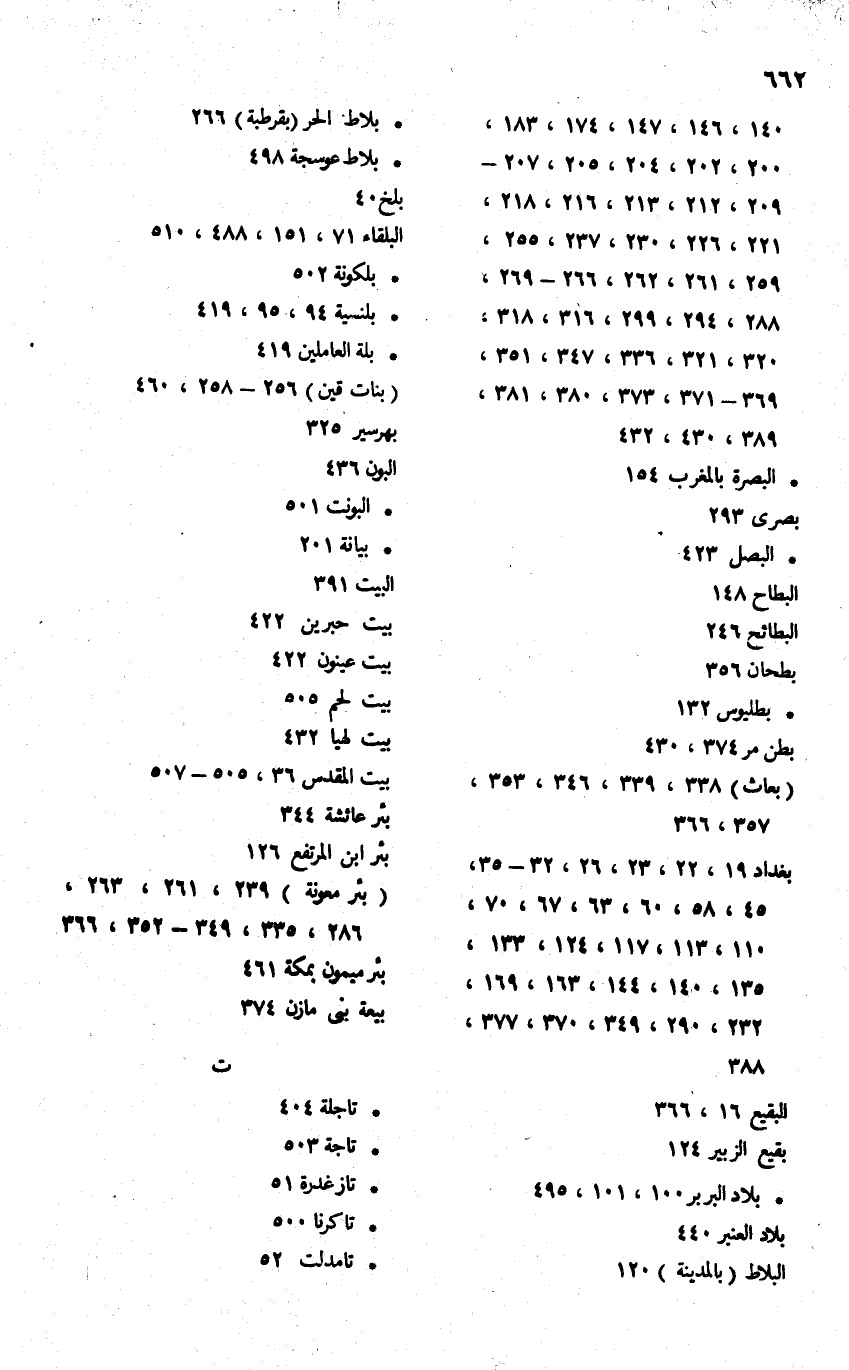 ٦٦٢
١٤٠ ، ١٤٦ ، ١٤٧ ، ١٧٤ ، ١٨٣ ،
٢٠٠ ، ٢٠٢ ، ٢٠٤ ، ٢٠٥ ، ٢٠٧ –
٢٠٩ ، ٢١٢ ، ٢١٣ ، ٢١٦ ، ٢١٨ ،
٢٢١ ، ٢٢٦ ، ٢٣٠ ، ٢٣٧ ، ٢٥٥ ،
٢٥٩ ، ٢٦١ ، ٢٦٢ ، ٢٦٦ – ٢٦٩ ،
٢٨٨ ، ٢٩٤ ، ٢٩٩ ، ٣١٦ ، ٣١٨ ،
٣٢٠ ، ٣٢١ ، ٣٣٦ ، ٣٤٧ ، ٣٥١ ،
٣٦٩ – ٣٧١ ، ٣٧٣ ، ٣٨٠ ، ٣٨١ ،
٣٨٩ ، ٤٣٠ ، ٤٣٢
• البصرة بالمغرب ١٥٤
بصرى ٢٩٣
• البصل ٤٢٣
البطاح ١٤٨
البطائح ٢٤٦
بطحان ٣٥٦
• بطليوس ١٣٢
بطن مر ٣٧٤ ، ٤٣٠
( بعاث ) ٣٣٨ ، ٣٣٩ ، ٣٤٦ ، ٣٥٣ ،
٣٥٧ ، ٣٦٦
بغداد ١٩ ، ٢٢ ، ٢٣ ، ٢٦ ، ٣٢ – ٣٥،
٤٥ ، ٥٨ ، ٦٠ ، ٦٣ ، ٦٧ ، ٧٠ ،
١١٠ ، ١١٣ ، ١١٧ ، ١٢٤ ، ١٣٣ ،
١٣٥ ، ١٤٠ ، ١٤٤ ، ١٦٣ ، ١٦٩ ،
٢٣٢ ، ٢٩٠ ، ٣٤٩ ، ٣٧٠ ، ٣٧٧ ،
٣٨٨
البقيع ١٦ ، ٣٦٦
بقيع الزبير ١٢٤
• بلاد البربر ١٠٠ ، ١٠١ ، ٤٩٥
بلاد العنبر ٤٤٠
البلاط ( بالمدينة ) ١٢٠
• بلاط الحر (بقرطبة ) ٢٦٦
• بلاط عوسجة ٤٩٨
بلخ ٤٠
البلقاء ٧١ ، ١٥١ ، ٤٨٨ ، ٥١٠
• بلكونة ٥٠٢
• بلنسية ٩٤ ، ٩٥ ، ٤١٩
• بلة العاملين ٤١٩
( بنات قين ) ٢٥٦ – ٢٥٨ ، ٤٦٠
بهرسير ٣٢٥
البون ٤٣٦
• البونت ٥٠١
• بيانة ٢٠١
البيت ٣٩١
بيت حبرين ٤٢٢
بيت عينون ٤٢٢
بيت لحم ٥٠٥
بيت لهيا ٤٣٢
بيت المقدس ٣٦ ، ٥٠٥ – ٥٠٧
بئر عائشة ٣٤٤
بئر ابن المرتفع ١٢٦
( بئر معونة ) ٢٣٩ ، ٢٦١ ، ٢٦٣ ،
٢٨٦ ، ٣٣٥ ، ٣٤٩ – ٣٥٢ ، ٣٦٦
بئر ميمون بمكة ٤٦١
بيعة بنى مازن ٣٧٤
ت
• تاجلة ٤٠٤
• تاجة ٥٠٣
• تازغدرة ٥١
• تاكرنا ٥٠٠
• تامدلت ٥٢